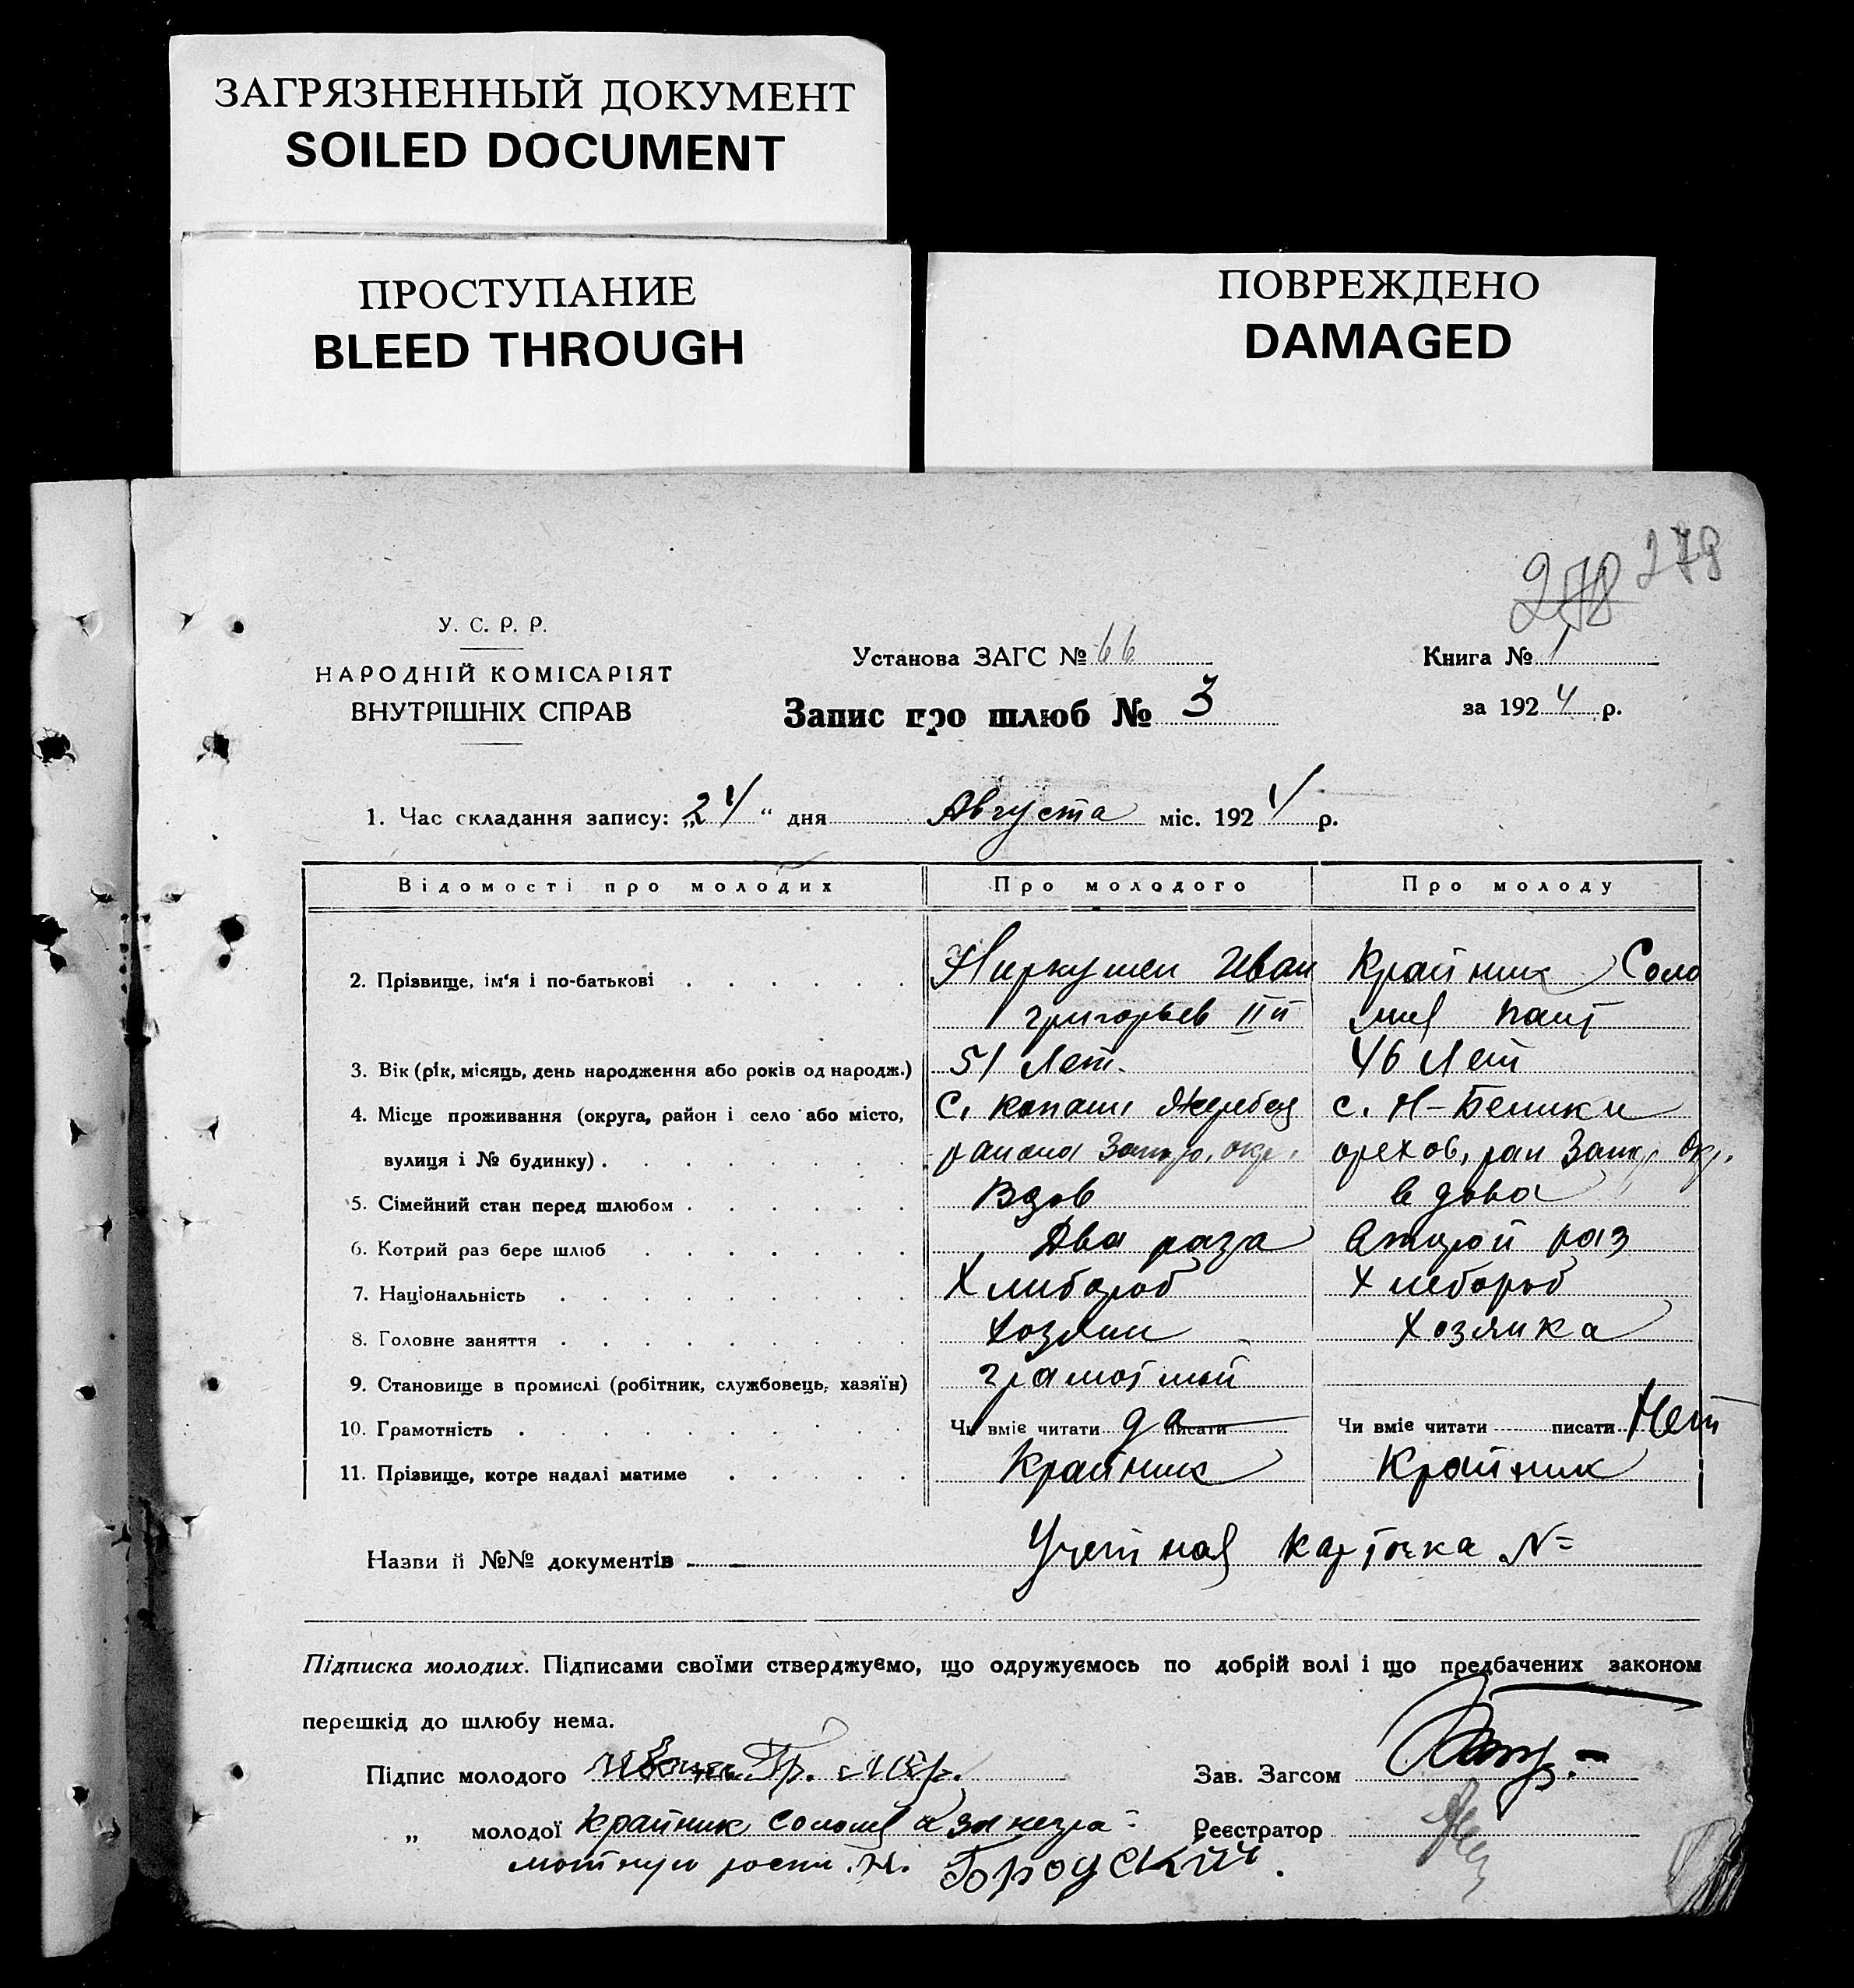 ЗАГРЯЗНЕННЫЙ ДОКУМЕНТ
SOILED DOCUMENT
ПРОСТУПАНИЕ
BLEED THROUGH
ПОВРЕЖДЕНО
DAMAGED
278 279
У. С. Р. Р.
НАРОДНІЙ КОМІСАРІЯТ
ВНУТРІШНІХ СПРАВ
Установа ЗАГС № 66
Запис про шлюб № 3
Книга № 1
за 1924 р.
1. Час складання запису: „24“ дня Августа міс. 1924 р.
Відомості про молодих Про молодого Про молоду
2. Прізвище, ім'я і по-батькові Иван Крайник Соло
григорьев мия
3. Вік (рік, місяць, день народження або років од народж.) 51 Лет. 46 Лет
4. Місце проживання (округа, район і село або місто, с. копани с. Н-Белики
вулиця і № будинку) района Запор. окр. орехов, рай Запор окр.
5. Сімейний стан перед шлюбом Вдов вдова
6. Котрий раз бере шлюб Два раза второй раз
7. Національність Хлибороб Хлебороб
8. Головне заняття Хозяин Хозяика
9. Становище в промислі (робітник, службовець, хазяїн) грамотный
10. Грамотність Чи вміє читати да писати Чи вміє читати писати Нет
11. Прізвище, котре надалі матиме Крайник Крайник
Назви й №№ документів Учетная карточка №
Підписка молодих. Підписами своїми стверджуємо, що одружуємось по добрій волі і що предбачених законом
перешкід до шлюбу нема.
Підпис молодого Гр.
Зав. Загсом
„ молодої Крайник Соломия а за негра-
Реєстратор
мотную росп. Н. Бродский.